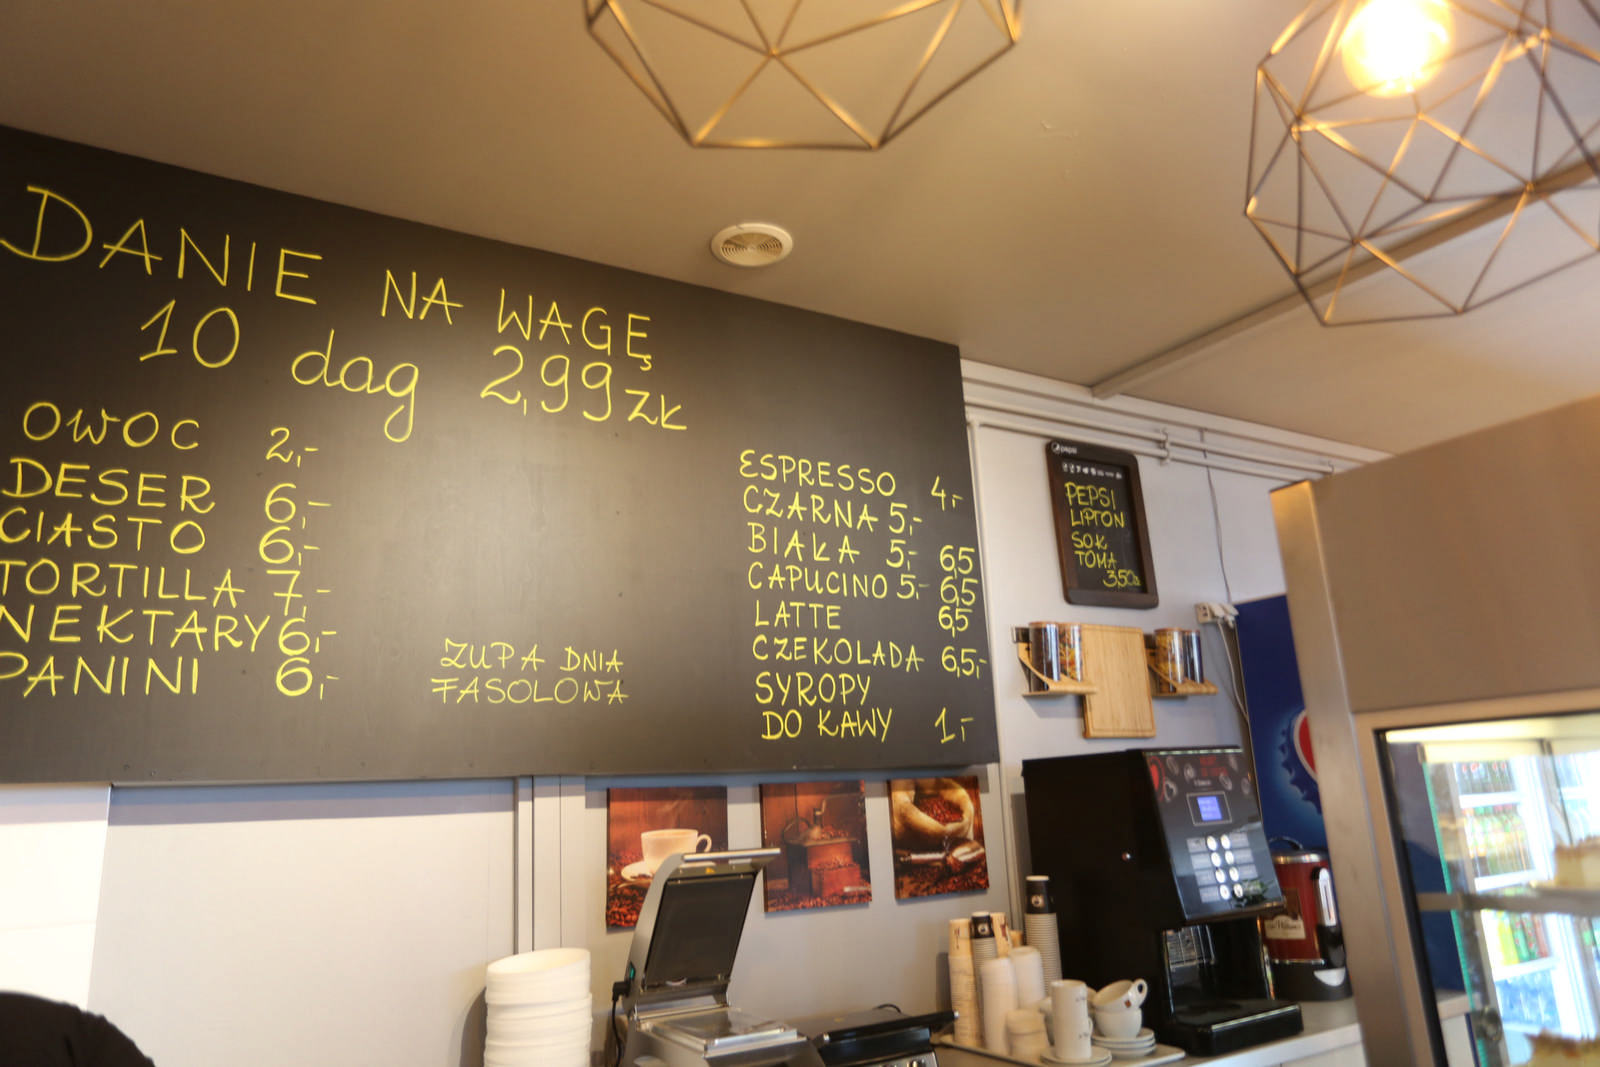 DANIE NA WAGĘ
10 dag 2,99 zł
OWOC 2,-
DESER 6,-
CIASTO 6,-
TORTILLA 7,-
NEKTARY 6,-
PANINI 6,-
ZUPA DNIA
FASOLOWA
ESPRESSO 4,-
CZARNA 5,-
BIAŁA 5,- 6,5
CAPUCINO 5,- 6,5
LATTE 6,5
CZEKOLADA 6,5,-
SYROPY
DO KAWY 1,-
pepsi
PEPSI
LIPTON
SOK
TOMA
3,50zł